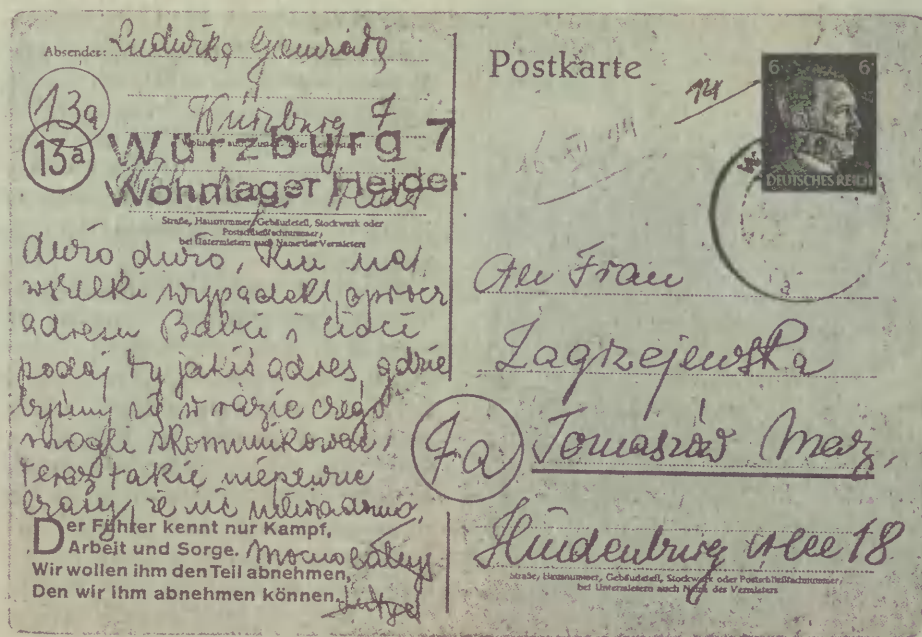 Absender: Ludwika
13a
Würzburg 7
13a Würzburg 7
Wohnlager Heider
Straße, Hausnummer, Gebäudeteil, Stockwerk oder
Postschließfachnummer;
bei Untermietern auch Name des Vermieters
dużo dużo, na
wszelki wypadek, oprócz
adresu Babci i cioci
podaj ty jakiś adres, gdzie
byśmy się w razie czego
mogli skomunikować,
teraz takie niepewne
czasy, że nic niewiadomo.
Der Führer kennt nur Kampf,
Arbeit und Sorge. Mocno
Wir wollen ihm den Teil abnehmen,
Den wir ihm abnehmen können.
Postkarte
6 6
DEUTSCHES REICH
An Frau
Zagrzejewska
7a Tomaszów Maz.
Hindenburg 18
Straße, Hausnummer, Gebäudeteil, Stockwerk oder Postschließfachnummer;
bei Untermietern auch Name des Vermieters